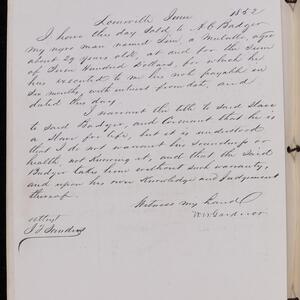 Louisville June 1852
I have this day Sold to A C Badger
my negro man named Sam, a Mulatto, age
about 29 years old, at and for the Sum
of Seven Hundred Dollars, for which he
has executed to me his note payable in
Six months, with interest from date, and
dated this day
I warrant the title to Said Slave
to said Badger, and Covenant that he is
a Slave for life, but it is understood
that I do not warrant his Soundness or
health, not knowing it, and that the Said
Badger takes him without such warranty,
and upon his own Knowledge and Judgement
thereof.
Witness my hand
Attest